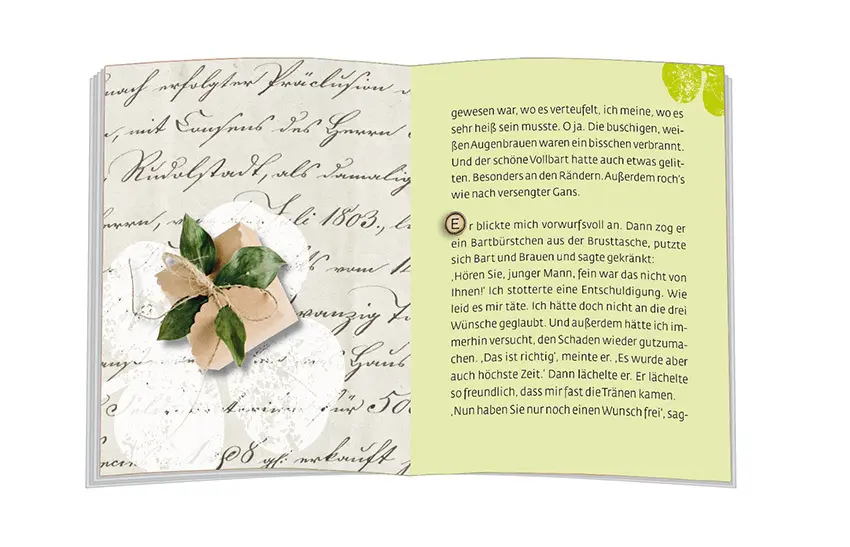 nach erfolgter Präclusion
, mit Consens des Herrn
Rudolstadt, als damalig
Juli 1803.,
vom
wanzig
Haus
für 500
erkauft
gewesen war, wo es verteufelt, ich meine, wo es
sehr heiß sein musste. O ja. Die buschigen, wei-
ßen Augenbrauen waren ein bisschen verbrannt.
Und der schöne Vollbart hatte auch etwas gelit-
ten. Besonders an den Rändern. Außerdem roch's
wie nach versengter Gans.
Er blickte mich vorwurfsvoll an. Dann zog er
ein Bartbürstchen aus der Brusttasche, putzte
sich Bart und Brauen und sagte gekränkt:
‚Hören Sie, junger Mann, fein war das nicht von
Ihnen!' Ich stotterte eine Entschuldigung. Wie
leid es mir täte. Ich hätte doch nicht an die drei
Wünsche geglaubt. Und außerdem hätte ich im-
merhin versucht, den Schaden wieder gutzuma-
chen. ‚Das ist richtig', meinte er. ‚Es wurde aber
auch höchste Zeit.' Dann lächelte er. Er lächelte
so freundlich, dass mir fast die Tränen kamen.
‚Nun haben Sie nur noch einen Wunsch frei', sag-